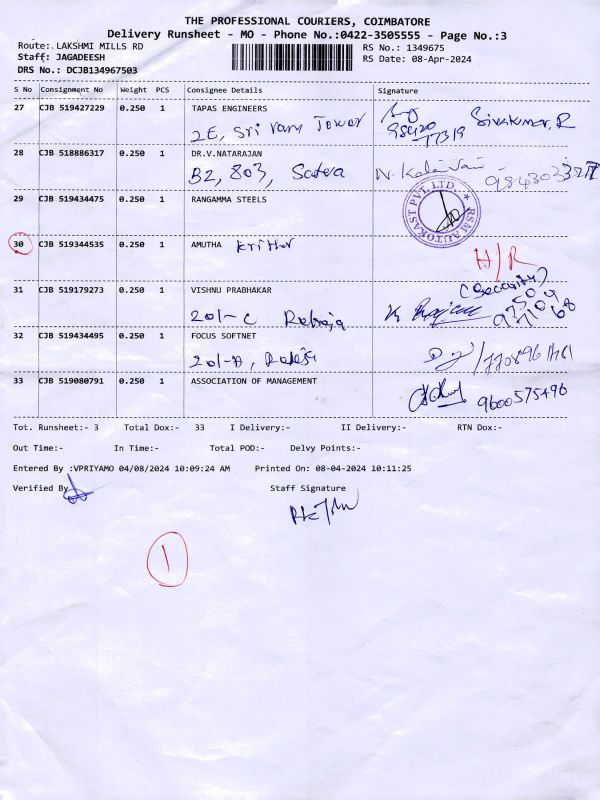 THE PROFESSIONAL COURIERS, COIMBATORE
Delivery Runsheet - MO - Phone No.:0422-3505555 - Page No.:3
Route: LAKSHMI MILLS RD
RS No.: 1349675
Staff: JAGADEESH
RS Date: 08-Apr-2024
DRS No.: DCJB134967503
S No Consignment No Weight PCS Consignee Details Signature
27 CJB 519427229 0.250 1 TAPAS ENGINEERS
2E, Sri Vani Tower
Sivakumar.R
28 CJB 518886317 0.250 1 DR.V.NATARAJAN
B2, 803,
29 CJB 519434475 0.250 1 RANGAMMA STEELS
RSM AUTOKAST PVT. LTD.
30 CJB 519344535 0.250 1 AMUTHA
H/R
(Security)
31 CJB 519179273 0.250 1 VISHNU PRABHAKAR
201-C Raheja
32 CJB 519434495 0.250 1 FOCUS SOFTNET
33 CJB 519080791 0.250 1 ASSOCIATION OF MANAGEMENT
9600575496
Tot. Runsheet:- 3 Total Dox:- 33 I Delivery:- II Delivery:- RTN Dox:-
Out Time:- In Time:- Total POD:- Delvy Points:-
Entered By :VPRIYAMO 04/08/2024 10:09:24 AM Printed On: 08-04-2024 10:11:25
Verified By
Staff Signature
1